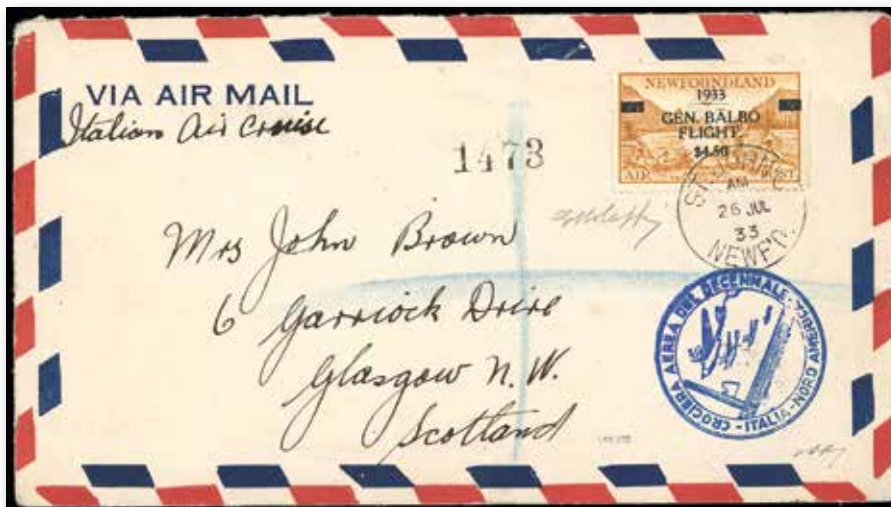 VIA AIR MAIL
Italian Air Cruise
NEWFOUNDLAND
1933
GEN. BALBO
FLIGHT.
$4.50
AIR POST
1473
ST. JOHN'S
AM
26 JUL
33
NEWF'D.
Mrs John Brown
6 Garriock Drive
Glasgow N.W.
Scotland
CROCIERA AEREA DEL DECENNALE - ITALIA - NORD AMERICA -